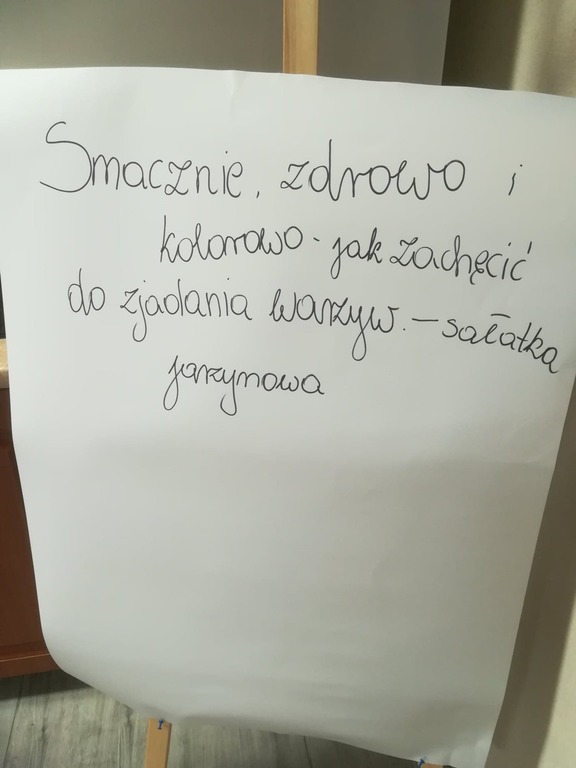 Smacznie, zdrowo i
kolorowo - jak zachęcić
do zjadania warzyw. - sałatka
jarzynowa